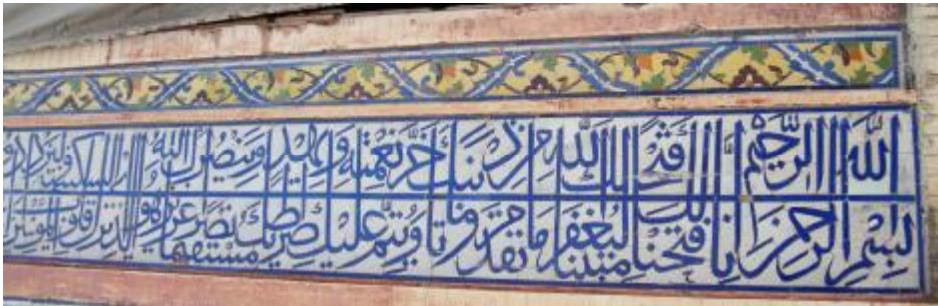 بسم الله الرحمن الرحيم إنا فتحنا لك فتحا مبينا ليغفر لك الله ما تقدم من ذنبك وما تأخر ويتم نعمته عليك ويهديك صراطا مستقيما وينصرك الله نصرا عزيزا هو الذي أنزل السكينة في قلوب المؤمنين ليزدادوا